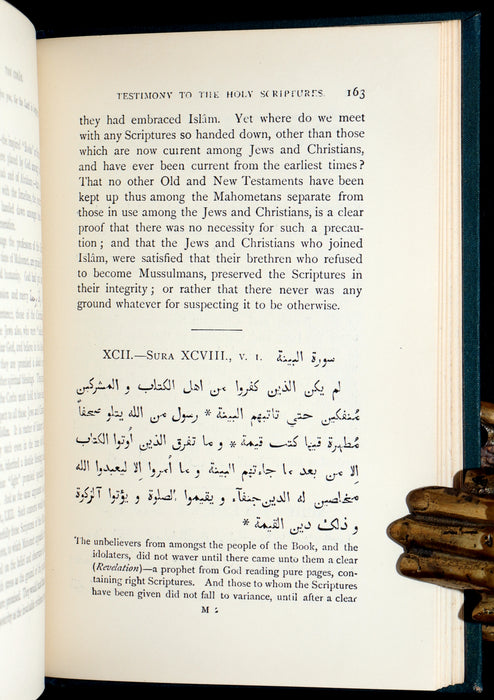 TESTIMONY TO THE HOLY SCRIPTURES. 163
they had embraced Islâm. Yet where do we meet
with any Scriptures so handed down, other than those
which are now current among Jews and Christians,
and have ever been current from the earliest times?
That no other Old and New Testaments have been
kept up thus among the Mahometans separate from
those in use among the Jews and Christians, is a clear
proof that there was no necessity for such a precau-
tion; and that the Jews and Christians who joined
Islâm, were satisfied that their brethren who refused
to become Mussulmans, preserved the Scriptures in
their integrity; or rather that there never was any
ground whatever for suspecting it to be otherwise.
XCII.—SURA XCVIII., v. 1. سورة البينة
لم يكن الذين كفروا من اهل الكتاب و المشركين
مُنفكين حتي تاتيهم البينة * رسول من الله يتلو صحفاً
مُطهرة فيها كتب قيمة * و ما تفرق الذين أوتوا الكتاب
إلا من بعد ما جاءتهم البينة و ما أمروا إلا ليعبدوا الله
مخلصين له الدين حنفاء و يقيموا الصلوة و يؤتوا الزكوة
و ذلك دين القيمة *
The unbelievers from amongst the people of the Book, and the
idolaters, did not waver until there came unto them a clear
(Revelation)—a prophet from God reading pure pages, con-
taining right Scriptures. And those to whom the Scriptures
have been given did not fall to variance, until after a clear
M 2